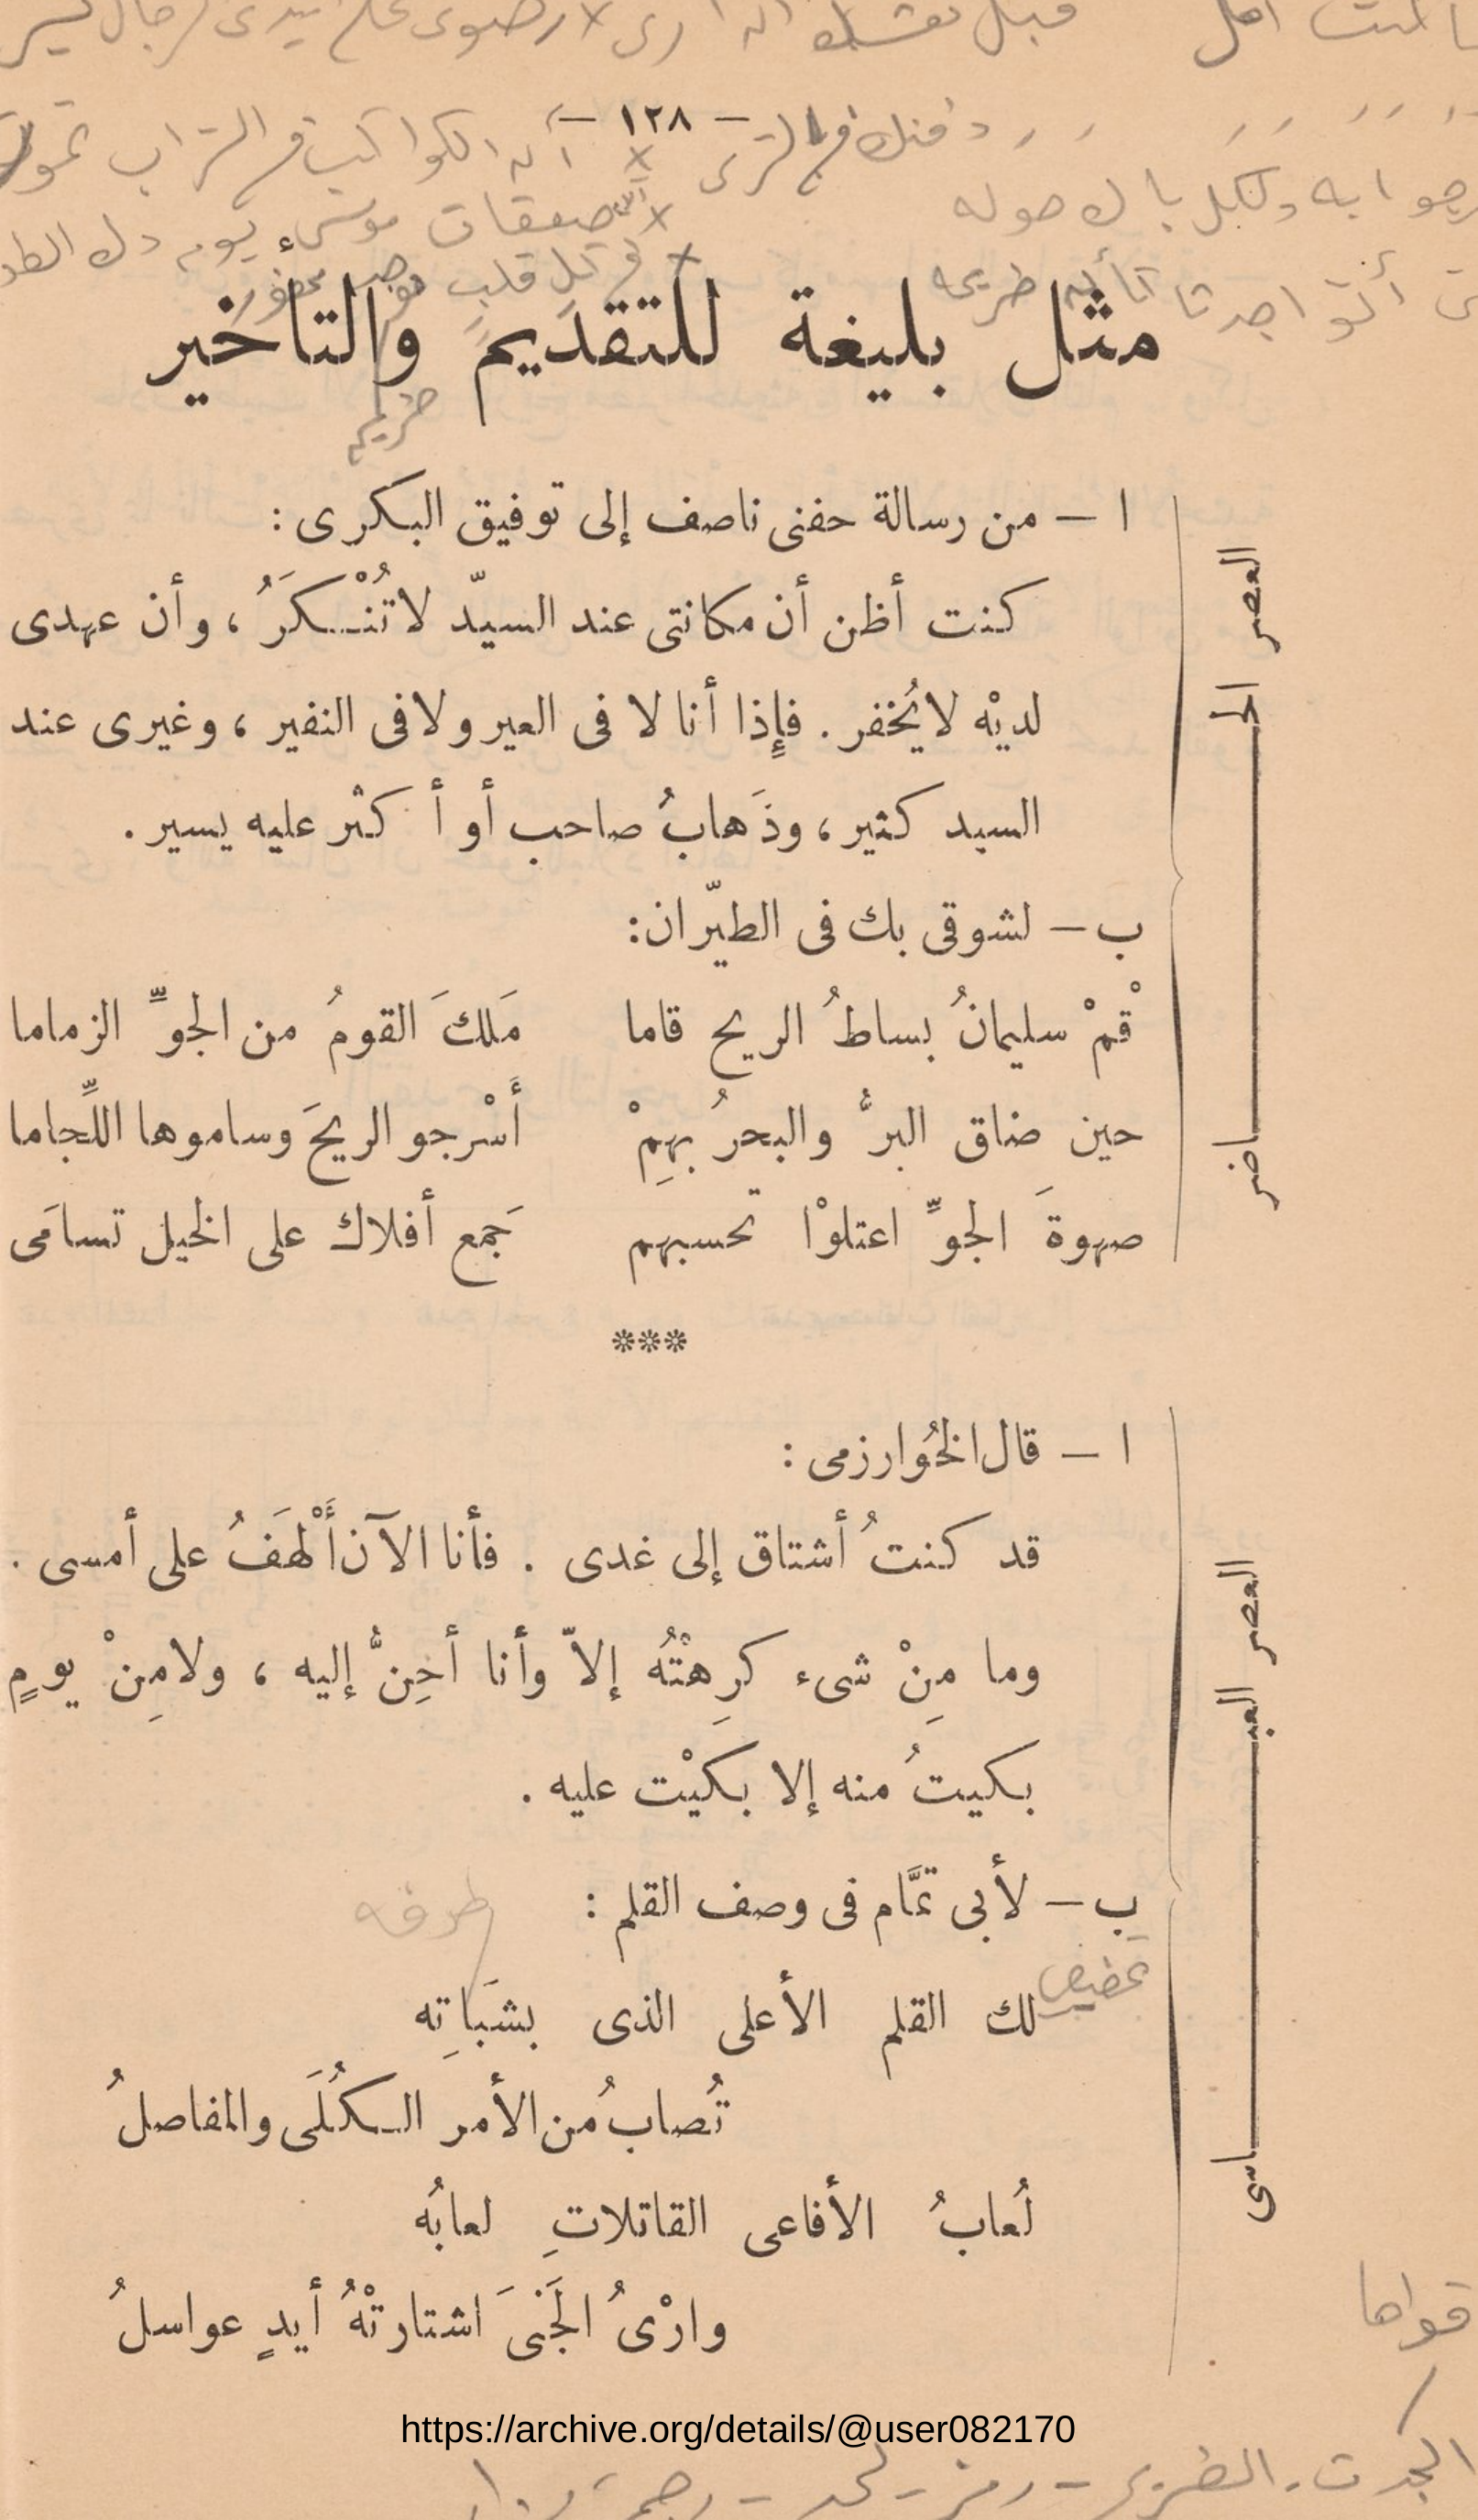 — ١٢٨ —
مثل بليغة للتقديم والتأخير
العصر الحـاضر
ا — من رسالة حفنى ناصف إلى توفيق البكرى :
كنت أظن أن مكانتى عند السيّد لا تُنْـكرَُ ، وأن عهدى
لديْه لا يُخفر . فإِذا أنا لا فى العير ولا فى النفير ، وغيرى عند
السيد كثير ، وذَهابُ صاحب أو أكثر عليه يسير .
ب — لشوقى بك فى الطيّران :
قمْ سليمانُ بساطُ الريح قاما مَلكَ القومُ من الجوِّ الزماما
حين ضاق البرُّ والبحرُ بهِمْ أَسْرجو الريحَ وساموها اللِّجاما
صهوةَ الجوِّ اعتلوْا تحسبهم جَمع أفلاك على الخيل تسامَى
***
العصر العبـاسى
ا — قال الخُوارزمى :
قد كنتُ أشتاق إلى غدى . فأنا الآن أَلْهَفُ على أمسى .
وما مِنْ شىء كرِهْتُه إلاّ وأنا أحِنُّ إليه ، ولا مِنْ يومٍ
بكيتُ منه إلا بكَيْت عليه .
ب — لأبى تمَّام فى وصف القلم :
طرفه
لك القلم الأعلى الذى بشَبَاتِه
تُصابُ من الأمر الـكُلَى والمفاصلُ
لُعابُ الأفاعى القاتلاتِ لعابُه
وارْىُ الجَنَى اشتارتْهُ أيدٍ عواسلُ
قواها
https://archive.org/details/@user082170